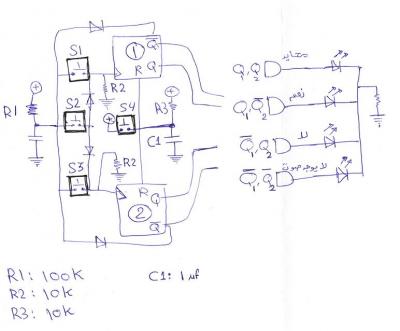 S1
1
Q̅
R Q
R2
R1
S2
S4
R3
C1
S3
R2
R Q
2
Q̅
Q₁,Q₂ محايد
Q₁,Q̅₂ نعم
Q̅₁,Q₂ لا
Q̅₁,Q̅₂ لا يوجد صوت
R1: 100K
R2: 10K
R3: 10K
C1: 1 μf